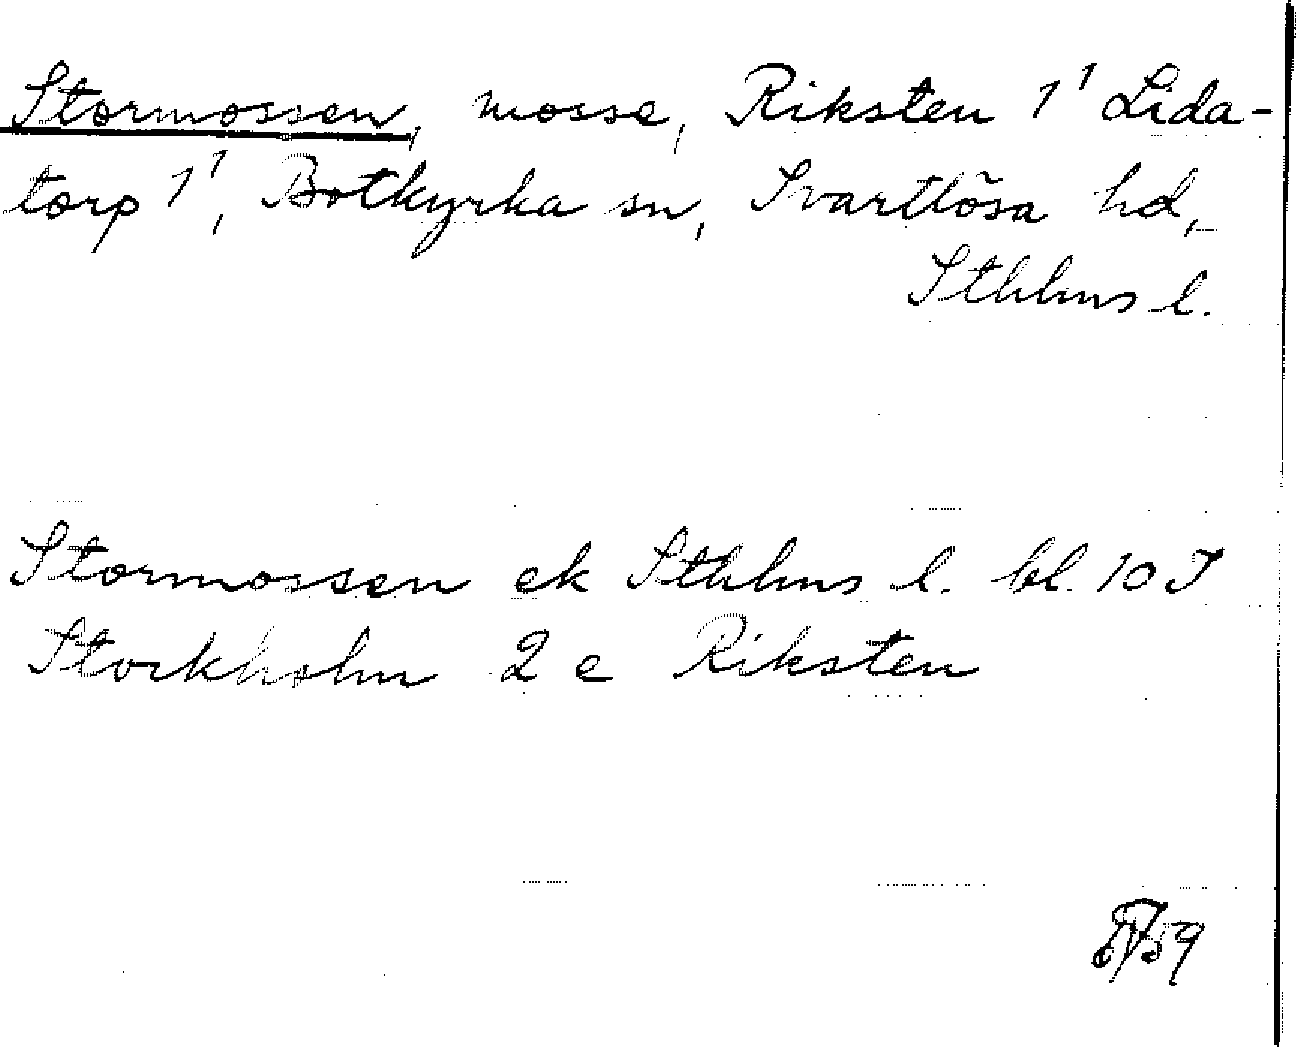 Stormossen, mosse, Riksten 1¹ Lida-
torp 1¹, Botkyrka sn, Svartlösa hd,
Sthlms l.
Stormossen ek Sthlms l. bl. 10 I
Stockholm 2 e Riksten